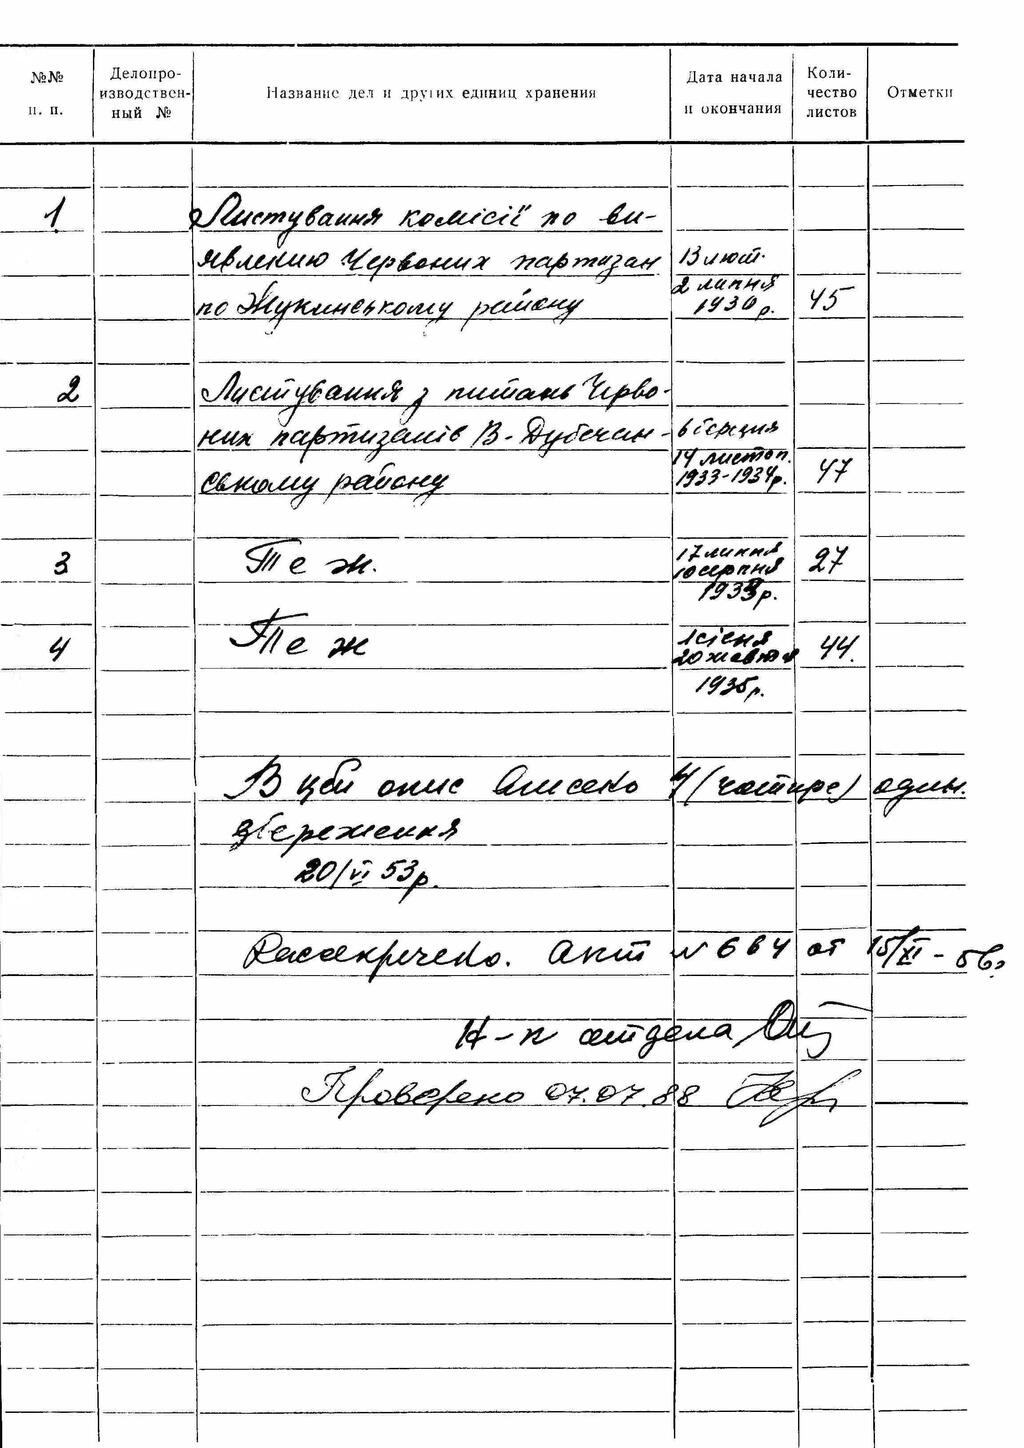 №№ п. п.
Делопро-изводствен-ный №
Название дел и других единиц хранения
Дата начала и окончания
Коли-чество листов
Отметки
1
Листування комісії по ви-
явленню Червоних партизан 13 лют.
2 липня
по Жукинському району 1930 р. 45
2
Листування з питань Черво-
них партизанів В-Дубечан- 6 серпня
14 листоп.
ському району 1933-1934р. 47
3 Те ж. 17 липня 27
10 серпня
193 р.
4 Те ж 1 січня 44.
20 жовтня
1935 р.
В цей опис внесено 4 (чотире) один.
збереження
20/VI 53р.
Рассекречено. Акт № 664 от 15/XI - 56.
Н-к отдела
Проверено 07.07.88